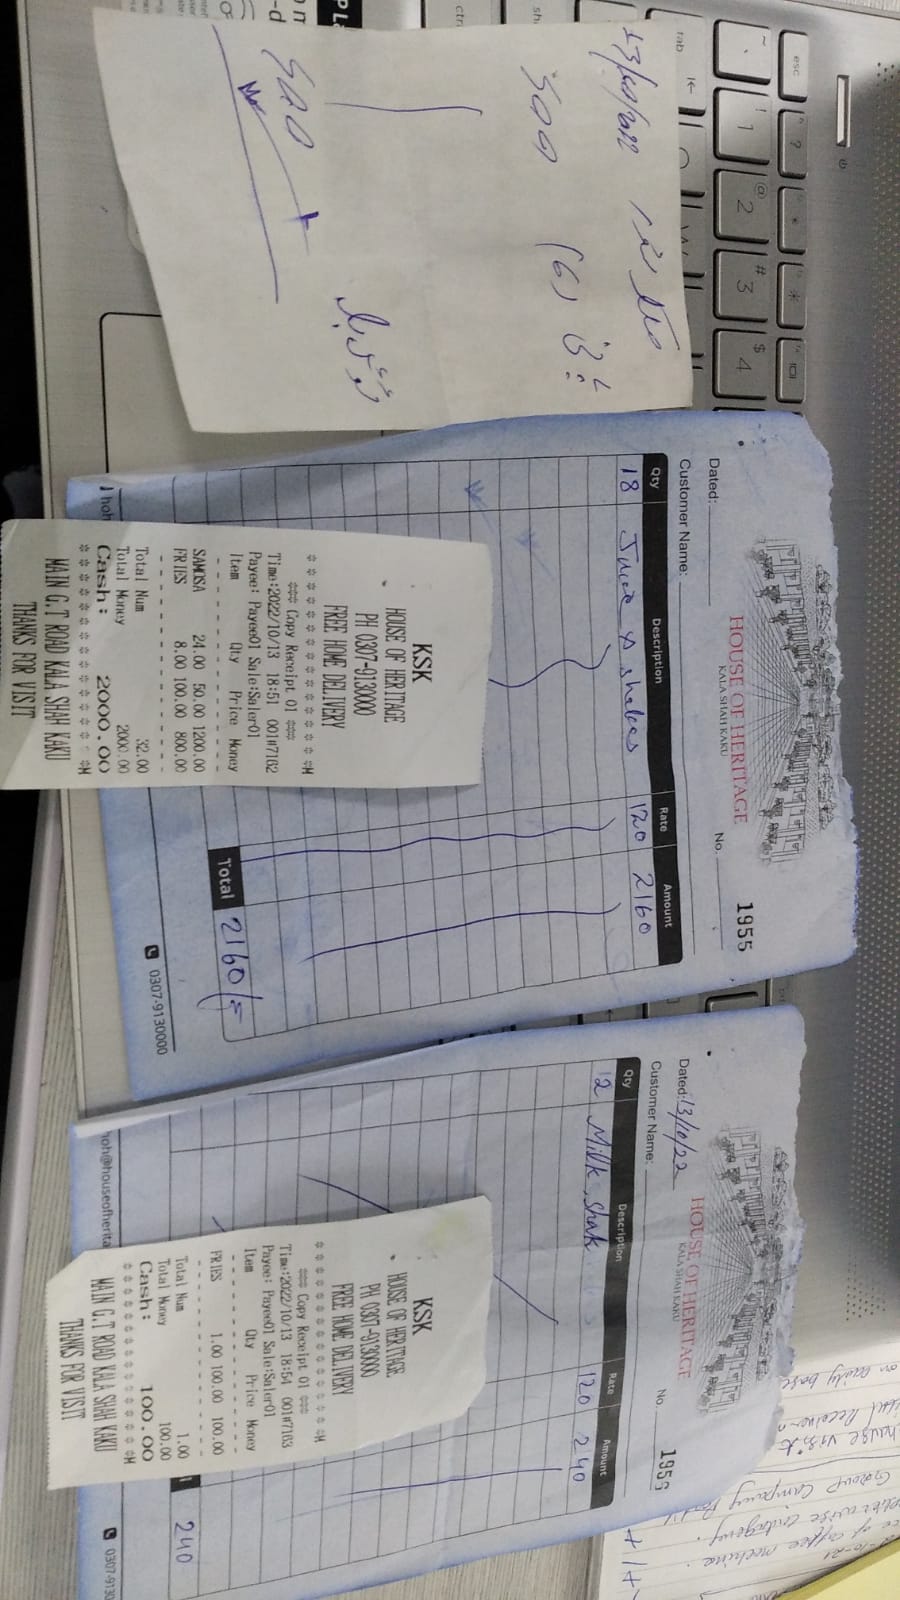 13/10/2022
500 (6)
500
HOUSE OF HERITAGE
KALA SHAH KAKU
Dated:
No. 1955
Customer Name:
Qty Description Rate Amount
18 Juice & shakes 120 2160
Total 2160/=
0307-9130000
KSK
HOUSE OF HERITAGE
PH 0307-9130000
FREE HOME DELIVERY
### Copy Receipt 01 ###
Time:2022/10/13 18:51 001#7162
Payee: Payee01 Sale:Saler01
Item Qty Price Money
SAMOSA 24.00 50.00 1200.00
FRIES 8.00 100.00 800.00
Total Num 32.00
Total Money 2000.00
Cash: 2000.00
MAIN G.T ROAD KALA SHAH KAKU
THANKS FOR VISIT
HOUSE OF HERITAGE
KALA SHAH KAKU
Dated: 13/10/22
No. 1956
Customer Name:
Qty Description Rate Amount
12 Milk shak 120 240
240
hoh@houseofherita
0307-9130
KSK
HOUSE OF HERITAGE
PH 0307-9130000
FREE HOME DELIVERY
### Copy Receipt 01 ###
Time:2022/10/13 18:54 001#7163
Payee: Payee01 Sale:Saler01
Item Qty Price Money
FRIES 1.00 100.00 100.00
Total Num 1.00
Total Money 100.00
Cash: 100.00
MAIN G.T ROAD KALA SHAH KAKU
THANKS FOR VISIT
esc
tab